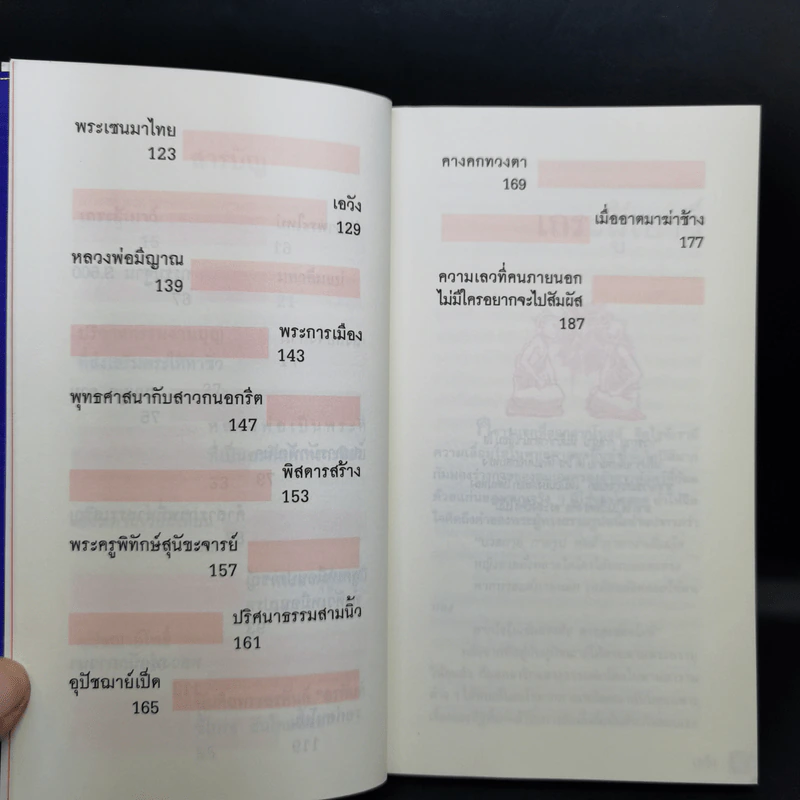 พระเซนมาไทย
123
เอวัง
129
หลวงพ่อมิญาณ
139
พระการเมือง
143
พุทธศาสนากับสาวกนอกรีต
147
พิสดารสร้าง
153
พระครูพิทักษ์สุนัขะจารย์
157
ปริศนาธรรมสามนิ้ว
161
อุปัชฌาย์เป็ด
165
คางคกทวงตา
169
เมื่ออาตมาฆ่าช้าง
177
ความเลวที่คนภายนอก
ไม่มีใครอยากจะไปสัมผัส
187